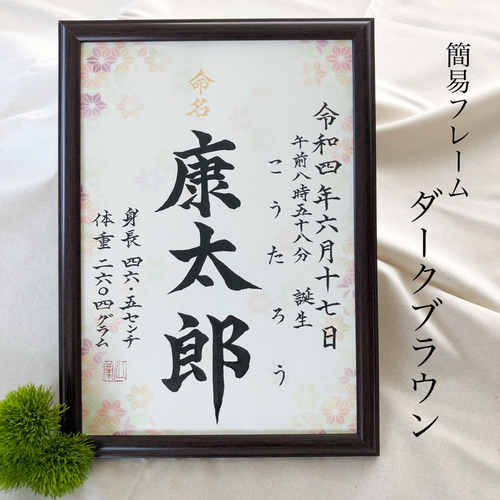 簡易フレーム
ダークブラウン
命名
令和四年六月十七日
午前八時五十八分 誕生
こうたろう
康太郎
身長 四六・五センチ
体重 二六〇四グラム